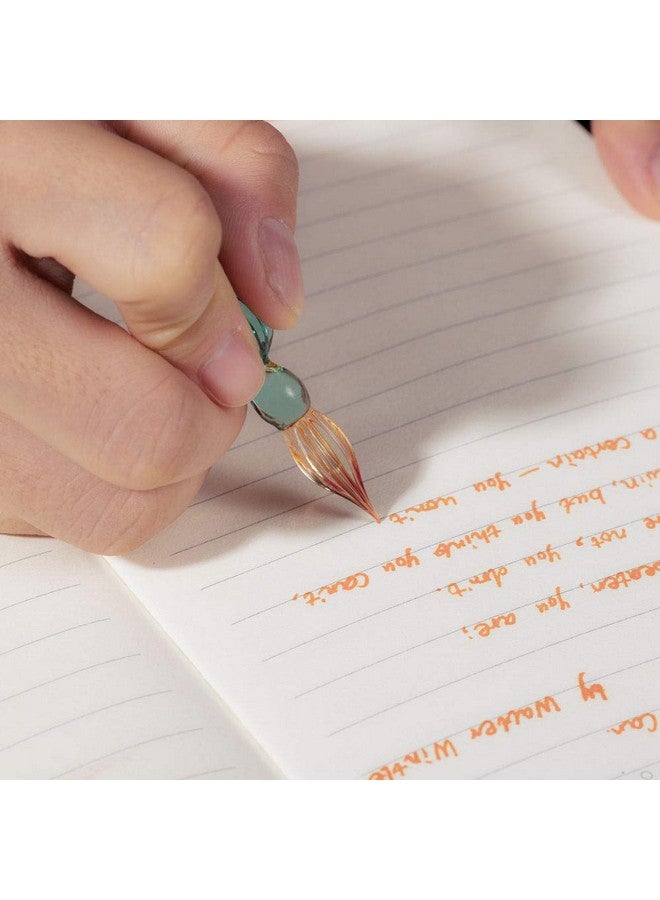 Can
by Walter Wintle
beaten, you are;
not, you don't.
win, but you think you can't,
a certain — you won't.